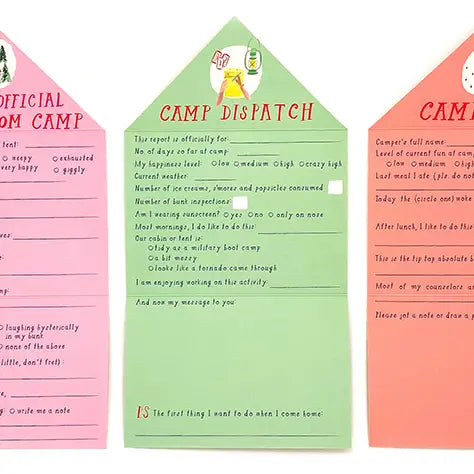 OFFICIAL
OM CAMP
tent:
weepy exhausted
very happy giggly
ves:
mp:
laughing hysterically
in my bunk
none of the above
little, don't fret):
e,
ng: write me a note
CAMP DISPATCH
This report is officially for:
No. of days so far at camp:
My happiness level: low medium high crazy high
Current weather:
Number of ice creams, s'mores and popsicles consumed
Number of bunk inspections:
Am I wearing sunscreen? yes no only on nose
Most mornings, I do like to do this:
Our cabin or tent is:
tidy as a military boot camp
a bit messy
looks like a tornado came through
I am enjoying working on this activity:
And now my message to you:
P.S. The first thing I want to do when I come home:
CAMP
Camper's full name:
Level of current fun at camp
low medium high
Last meal I ate (pls. do not
Today the (circle one) woke
After lunch, I like to do this
This is the tip top absolute b
Most of my counselors ar
Please jot a note or draw a p